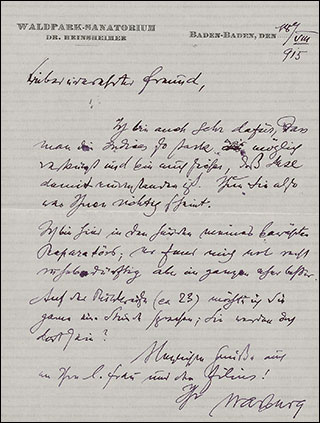 WALDPARK-SANATORIUM
DR. HEINSHEIMER
BADEN-BADEN, DEN 18/VIII
915
Lieber verehrter Freund,
Ich bin auch sehr dafür, dass
man die Indices so stark als möglich
verkürzt und bin auch froh, daß Saxl
damit einverstanden ist. Tun Sie also
was Ihnen richtig scheint.
Ich bin hier in den Händen meines bewährten
Reparateurs; er fand mich noch recht
ruhebedürftig aber im ganzen aber besser
Auf der Rückreise (ca 23) möchte ich Sie
gerne eine Stunde sprechen; Sie werden doch
dort sein?
Herzliche Grüße auch
an Ihre l. Frau und den Filius!
Ihr Warburg